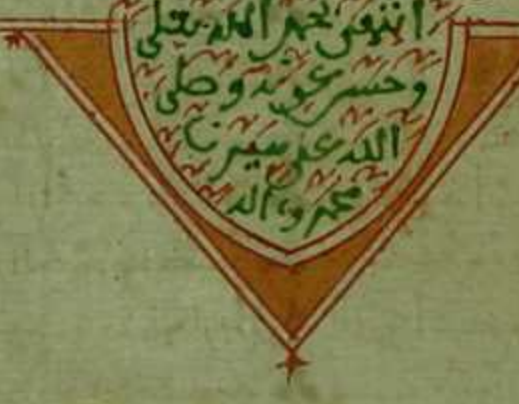 انتهى بحمد الله تعلى
وحسن عونه وصلى
الله على سيدنا
محمد وءاله